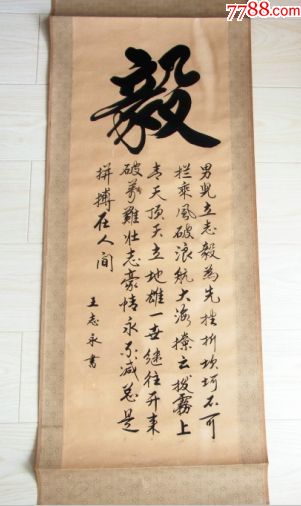 7788.com
毅
男儿立志毅为先挫折坎坷不可
拦乘风破浪航大海撩云拨雾上
青天顶天立地雄一世继往开来
破万难壮志豪情永不减总是
拼搏在人间
王志永书